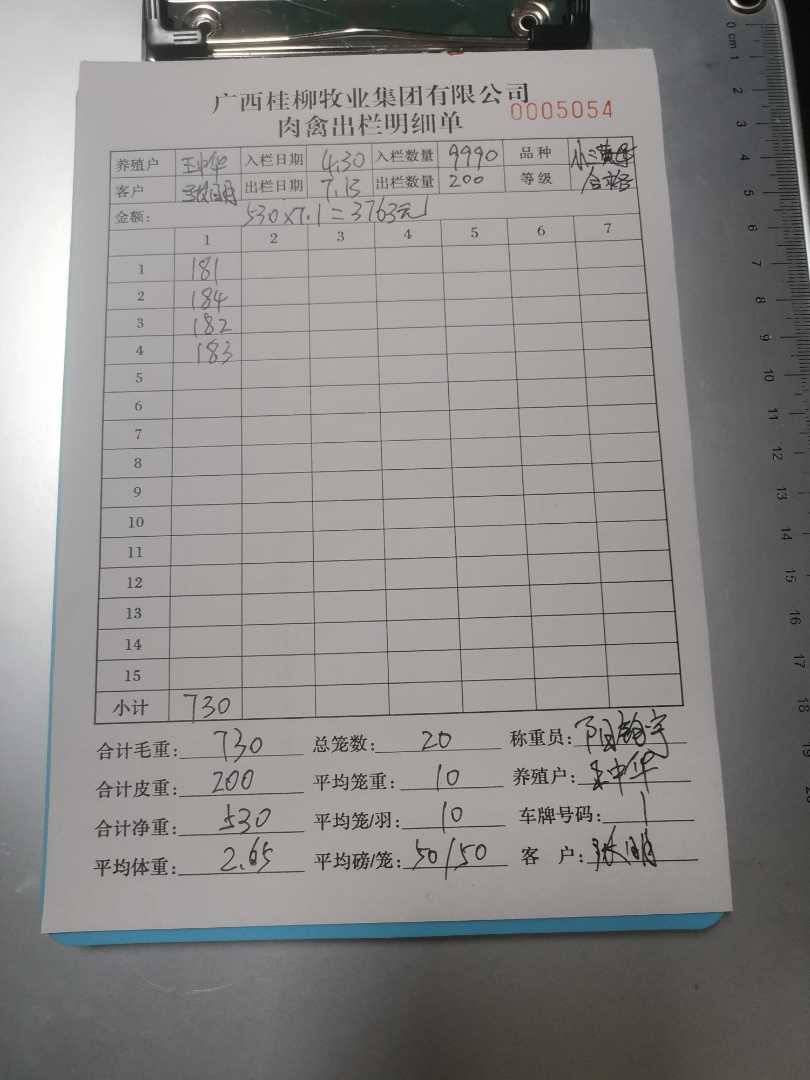 广西桂柳牧业集团有限公司
肉禽出栏明细单 0005054
养殖户 王中华 入栏日期 4.30 入栏数量 9990 品种
客户 出栏日期 7.13 出栏数量 200 等级 合格
金额: 530×7.1=3763元
1 2 3 4 5 6 7
1 181
2 184
3 182
4 183
5
6
7
8
9
10
11
12
13
14
15
小计 730
合计毛重: 730 总笼数: 20 称重员:
合计皮重: 200 平均笼重: 10 养殖户: 王中华
合计净重: 530 平均笼/羽: 10 车牌号码: /
平均体重: 2.65 平均磅/笼: 50/50 客 户: 张明
0 cm 1
2
3
4
5
6
7
8
9
10
11
12
13
14
15
16
17
18
19